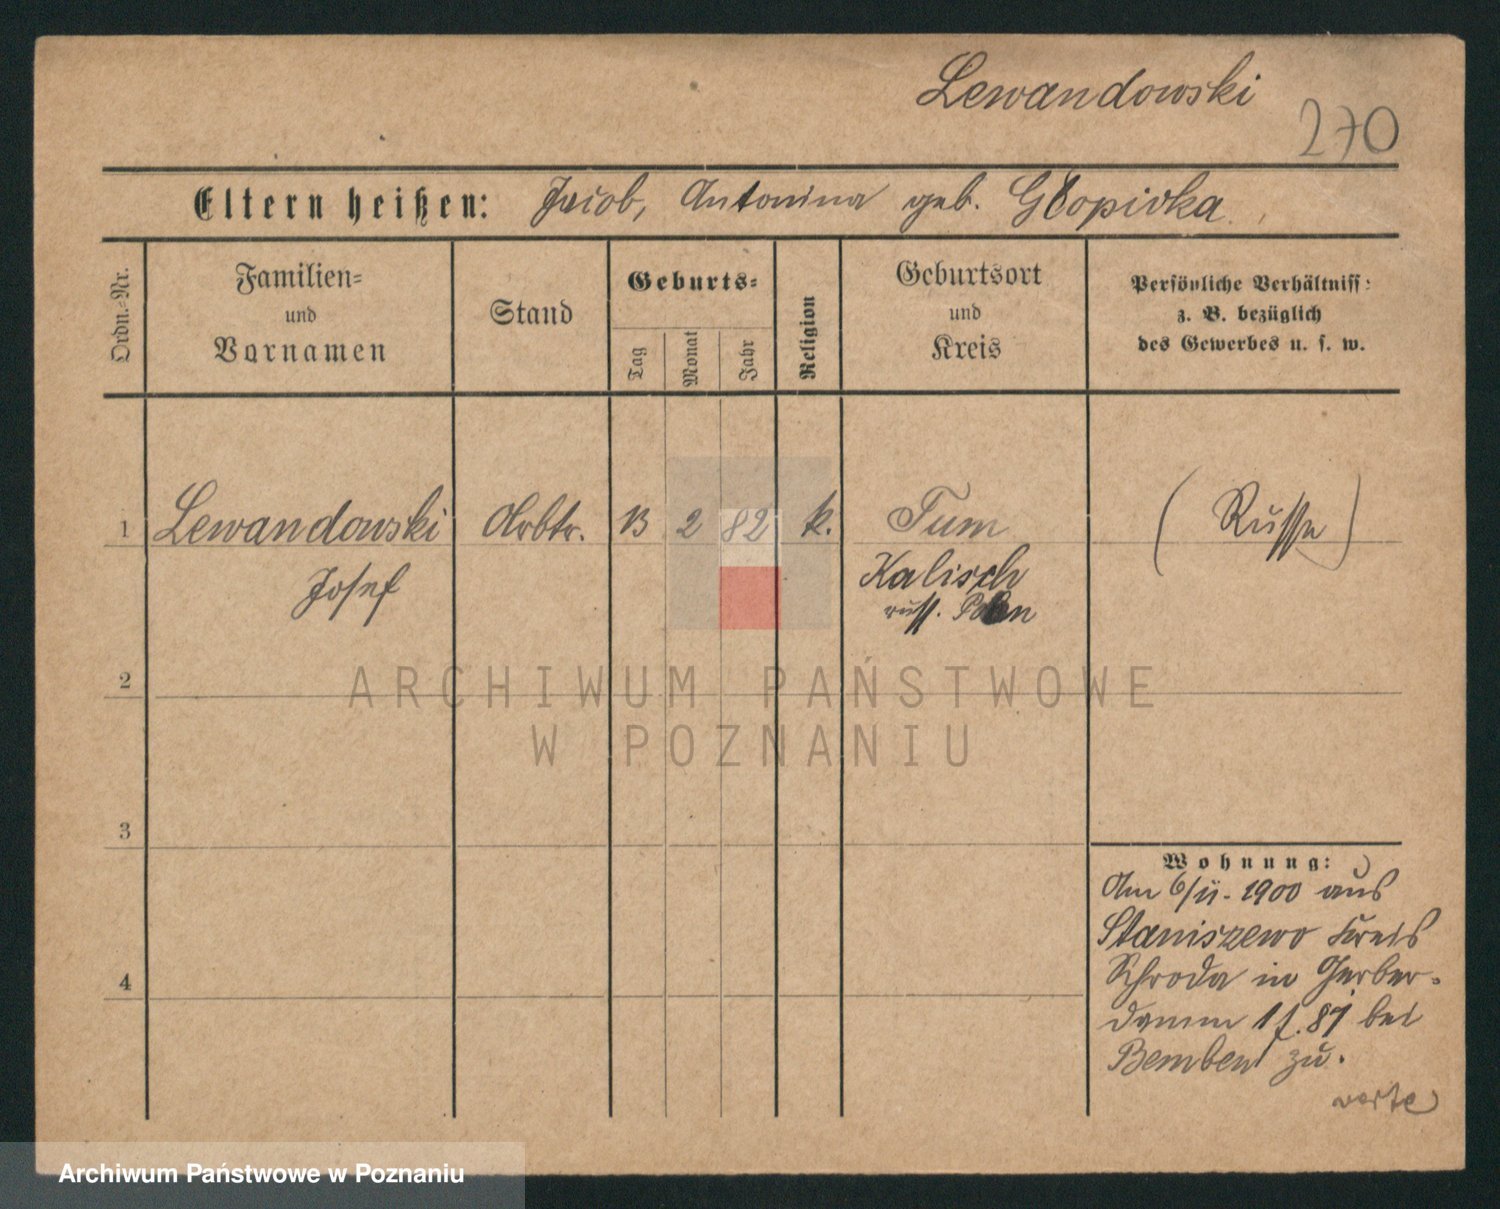 Lewandowski
270
Eltern heißen: Jacob, Antonina geb. Głopivka
Ordn.-Nr.
Familien-
und
Vornamen
Stand
Geburts-
Tag
Monat
Jahr
Religion
Geburtsort
und
Kreis
Persönliche Verhältniss:
z. B. bezüglich
des Gewerbes u. s. w.
1 Lewandowski Arbtr. 13 2 82 k. Tum (Russe)
Josef Kalisch
russ. Polen
2
3
4
Wohnung:
Am 6/11. 1900 aus
Staniszewo Kreis
Schroda in Gerber-
damm bei
Bemben zu.
verte
ARCHIWUM PAŃSTWOWE
W POZNANIU
Archiwum Państwowe w Poznaniu